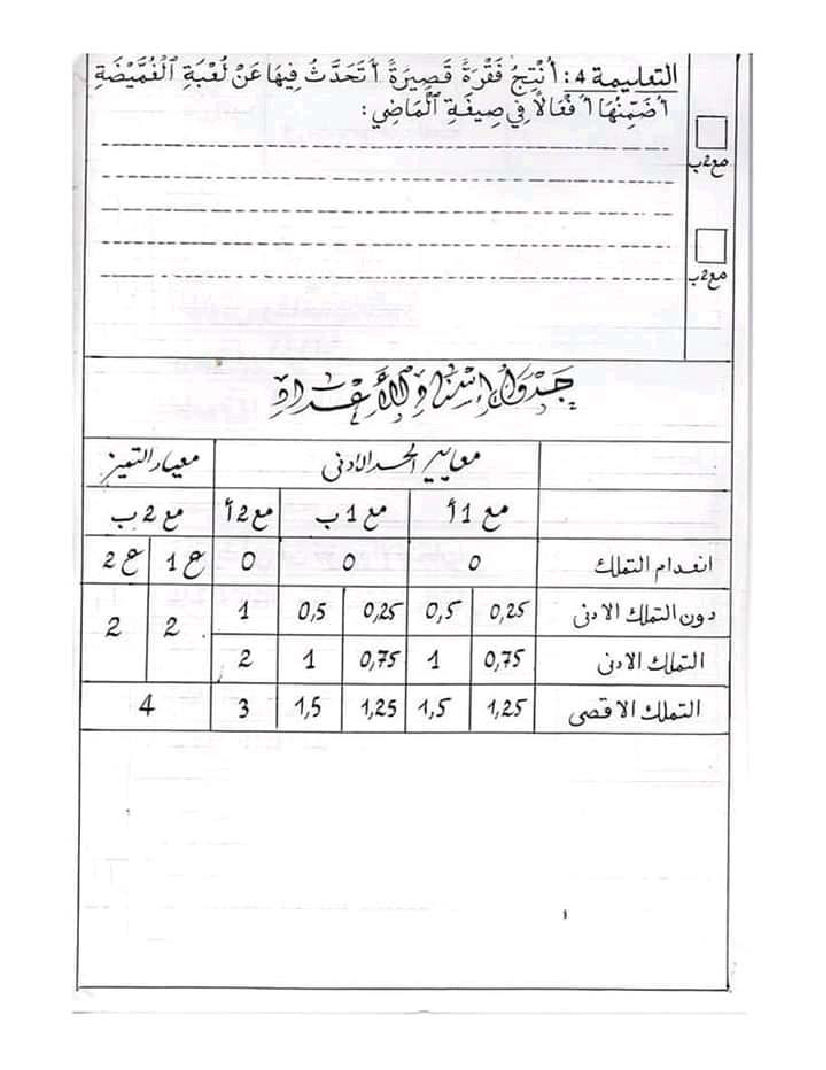 التعليمة 4: أُنْتِجُ فَقْرَةً قَصِيرَةً أَتَحَدَّثُ فِيهَا عَنْ لُعْبَةِ الْغُمَّيْضَةِ
أُضَمِّنُهَا أَفْعَالًا فِي صِيغَةِ الْمَاضِي:
مع2ب
مع2ب
جَدْوَلُ إِسْنَادِ الْأَعْدَادِ
معايير الحد الأدنى	معيار التميز
مع 1أ	مع 1ب	مع 2أ	مع 2ب
انعدام التملك	0	0	0	ع 1	ع 2
دون التملك الادنى	0,25	0,5	0,25	0,5	1	2	2
التملك الادنى	0,75	1	0,75	1	2
التملك الاقصى	1,25	1,5	1,25	1,5	3	4